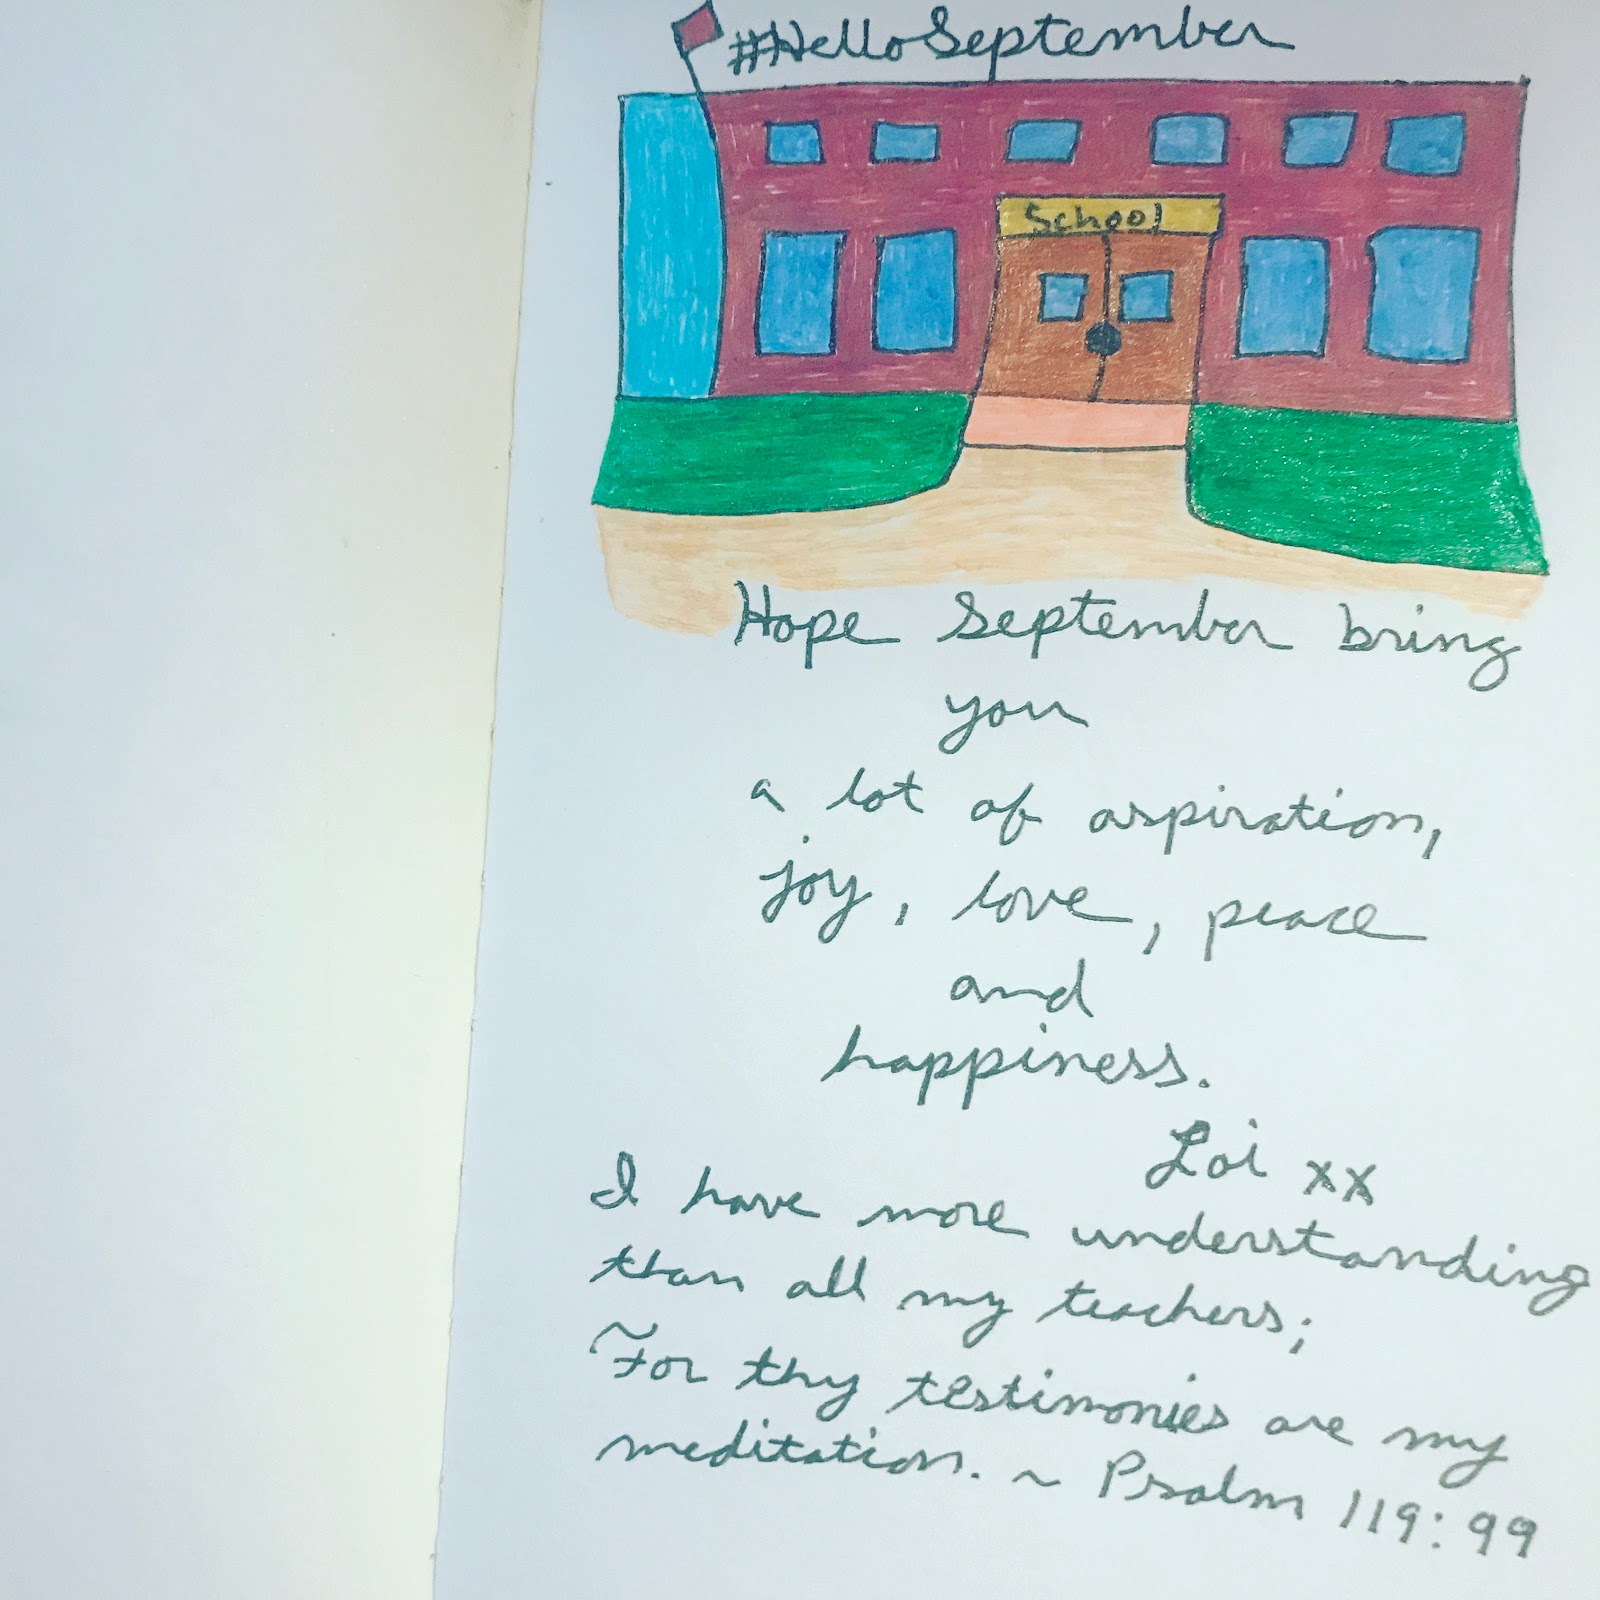 #HelloSeptember
School
Hope September bring
you
a lot of aspiration,
joy, love, peace
and
happiness.
Loi xx
I have more understanding
than all my teachers;
For thy testimonies are my
meditation. ~ Psalm 119:99